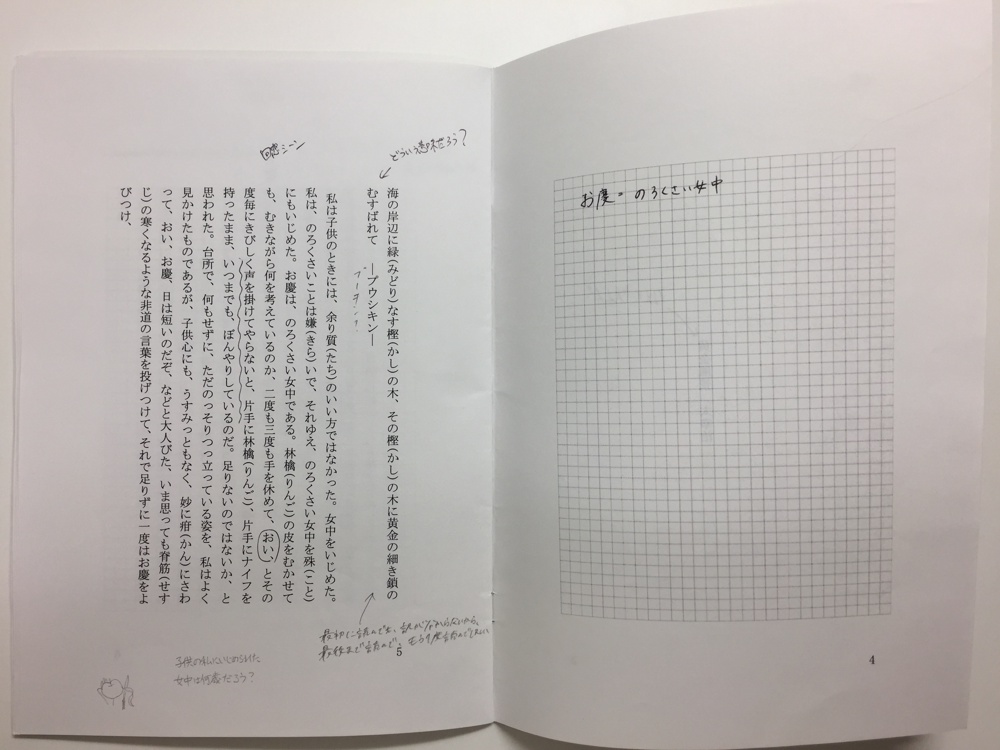 お慶=のろくさい女中
4
どういう意味だろう?
回想シーン
海の岸辺に緑(みどり)なす樫(かし)の木、その樫(かし)の木に黄金の細き鎖の
むすばれて ―プウシキン―
私は子供のときには、余り質(たち)のいい方ではなかった。女中をいじめた。
私は、のろくさいことは嫌(きら)いで、それゆえ、のろくさい女中を殊(こと)
にもいじめた。お慶は、のろくさい女中である。林檎(りんご)の皮をむかせて
も、むきながら何を考えているのか、二度も三度も手を休めて、おい、とその
度毎にきびしく声を掛けてやらないと、片手に林檎(りんご)、片手にナイフを
持ったまま、いつまでも、ぼんやりしているのだ。足りないのではないか、と
思われた。台所で、何もせずに、ただのっそりつっ立っている姿を、私はよく
見かけたものであるが、子供心にも、うすみっともなく、妙に疳(かん)にさわ
って、おい、お慶、日は短いのだぞ、などと大人びた、いま思っても脊筋(せす
じ)の寒くなるような非道の言葉を投げつけて、それで足りずに一度はお慶をよ
びつけ、
最初に読んでも、訳がわからないから、
最後まで読んで、もう1度読んで
5
子供の私にいじめられた
女中は何歳だろう?